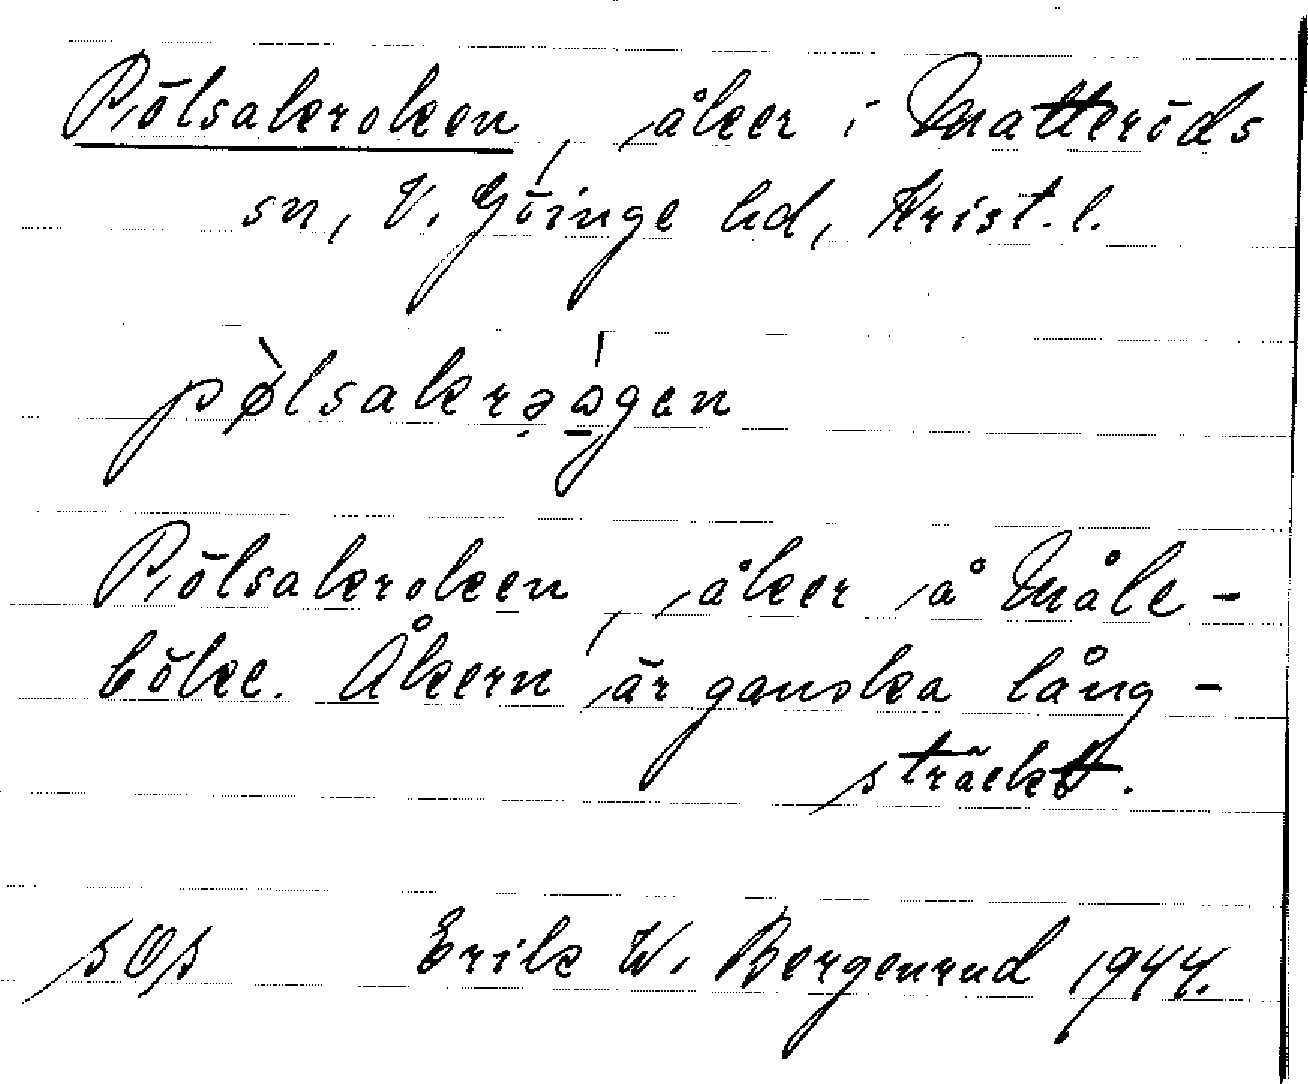 Pölsakroken, åker i Matteröds
sn, V. Göinge hd, Krist. l.
Pölsakroken, åker å Måle-
böke. Åkern är ganska lång-
sträckt.
Erik W. Bergenrud 1944.